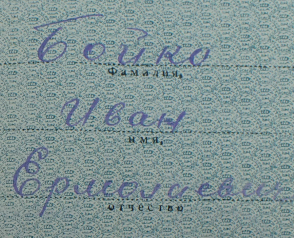 Бойко
Фамилия,
Иван
имя,
Ермолаевич
отчество